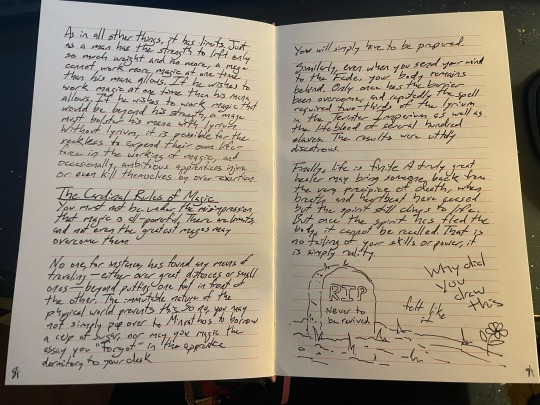 As in all other things, it has limits. Just
as a man has the strength to lift only
so much weight and no more, a mage
cannot work more magic at one time
than his mana allows. If he wishes to
work magic at one time than his mana
allows. If he wishes to work magic that
would be beyond his strength, a mage
must bolster his mana with lyrium.
Without lyrium, it is possible for the
reckless to expend their own life-
force in the working of magic, and
occasionally, ambitious apprentices injure
or even kill themselves by over-exertion.
The Cardinal Rules of Magic
You must not be under the misimpression
that magic is all-powerful. There are limits,
and not even the greatest mages may
overcome them
No one, for instance, has found any means of
traveling—either over great distances or small
ones—beyond putting one foot in front of
the other. The immutable nature of the
physical world prevents this. So no, you may
not simply pop over to Minrathous to borrow
a cup of sugar, nor may you magic the
essay you "forgot" in the apprentice
dormitory to your desk
You will simply have to be prepared.
Similarly, even when you send your mind
to the Fade, your body remains
behind. Only once has this barrier
been overcome, and reputedly the spell
required two-thirds of the lyrium
in the Tevinter Imperium, as well as
the lifeblood of several hundred
slaves. The results were utterly
disastrous.
Finally, life is finite. A truly great
healer may bring someone back from
the very precipice of death, when
breath and heartbeat have ceased
but the spirit still clings to life.
But once the spirit has fled the
body, it cannot be recalled. That is
no failing of your skills or power, it
is simply reality.
RIP
Never to
be revived
Why did
you
draw
this
felt like
it